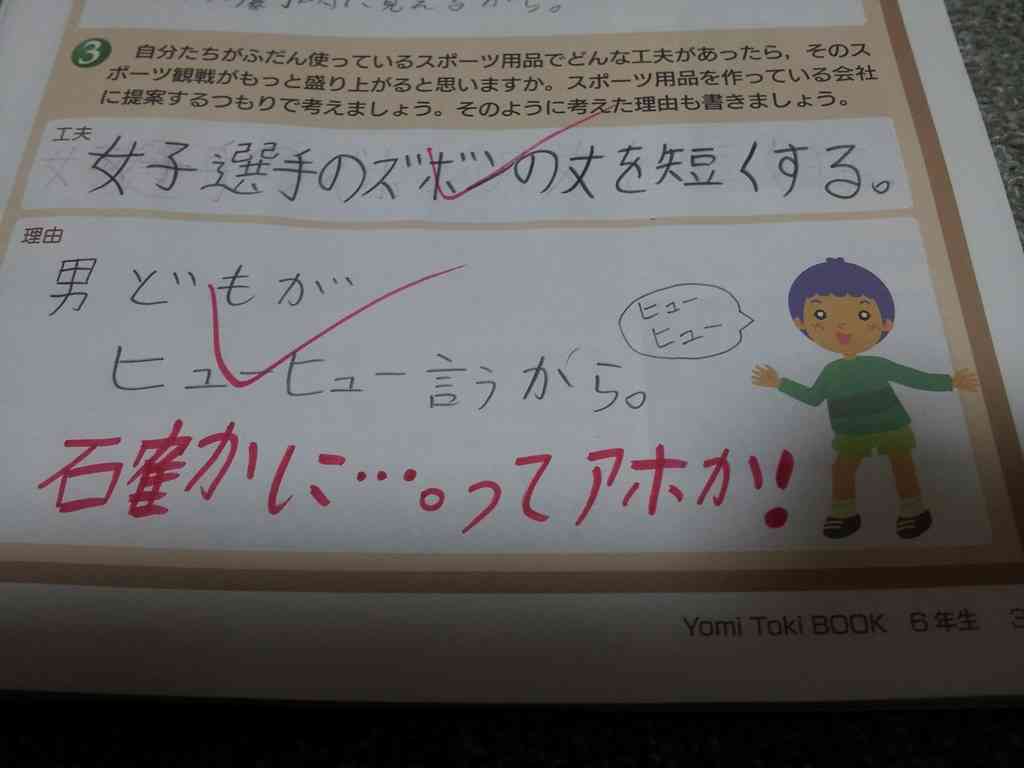 から。
3 自分たちがふだん使っているスポーツ用品でどんな工夫があったら,そのス
ポーツ観戦がもっと盛り上がると思いますか。スポーツ用品を作っている会社
に提案するつもりで考えましょう。そのように考えた理由も書きましょう。
工夫
女子選手のズボンの丈を短くする。
理由
男どもが
ヒューヒュー言うから。
ヒュー
ヒュー
確かに…。ってアホか!
Yomi Toki BOOK 6年生 3